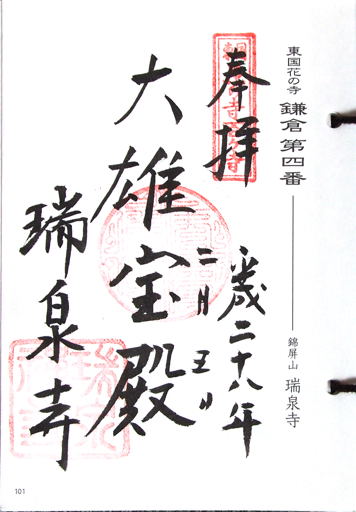 東国花の寺 鎌倉 第四番 錦屏山 瑞泉寺
奉拝
平成二十八年
二月五日
大雄宝殿
瑞泉寺
101